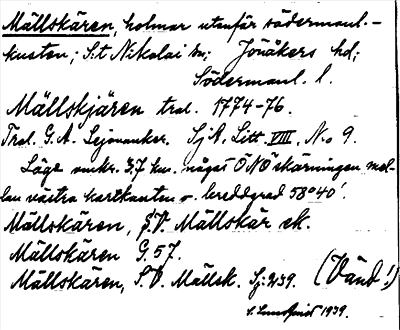 Mällskären, holmar utanför södermanl.-
kusten; S:t Nikolai sn; Jönåkers hd;
Södermanl. l.
Mällskjären tral. 1774-76.
Tral. G.A. Lejonanker. SjA. Litt. VIII, No 9.
Läge omkr. 3,7 km. något ÖNÖ skärningen mel-
lan västra kartkanten o. breddgrad 58°40'.
Mällskären, S.V. Mällskär ek.
Mällskären G.57.
Mällskären, S.V. Mällsk. Sj:239. (Vänd!)
1939.